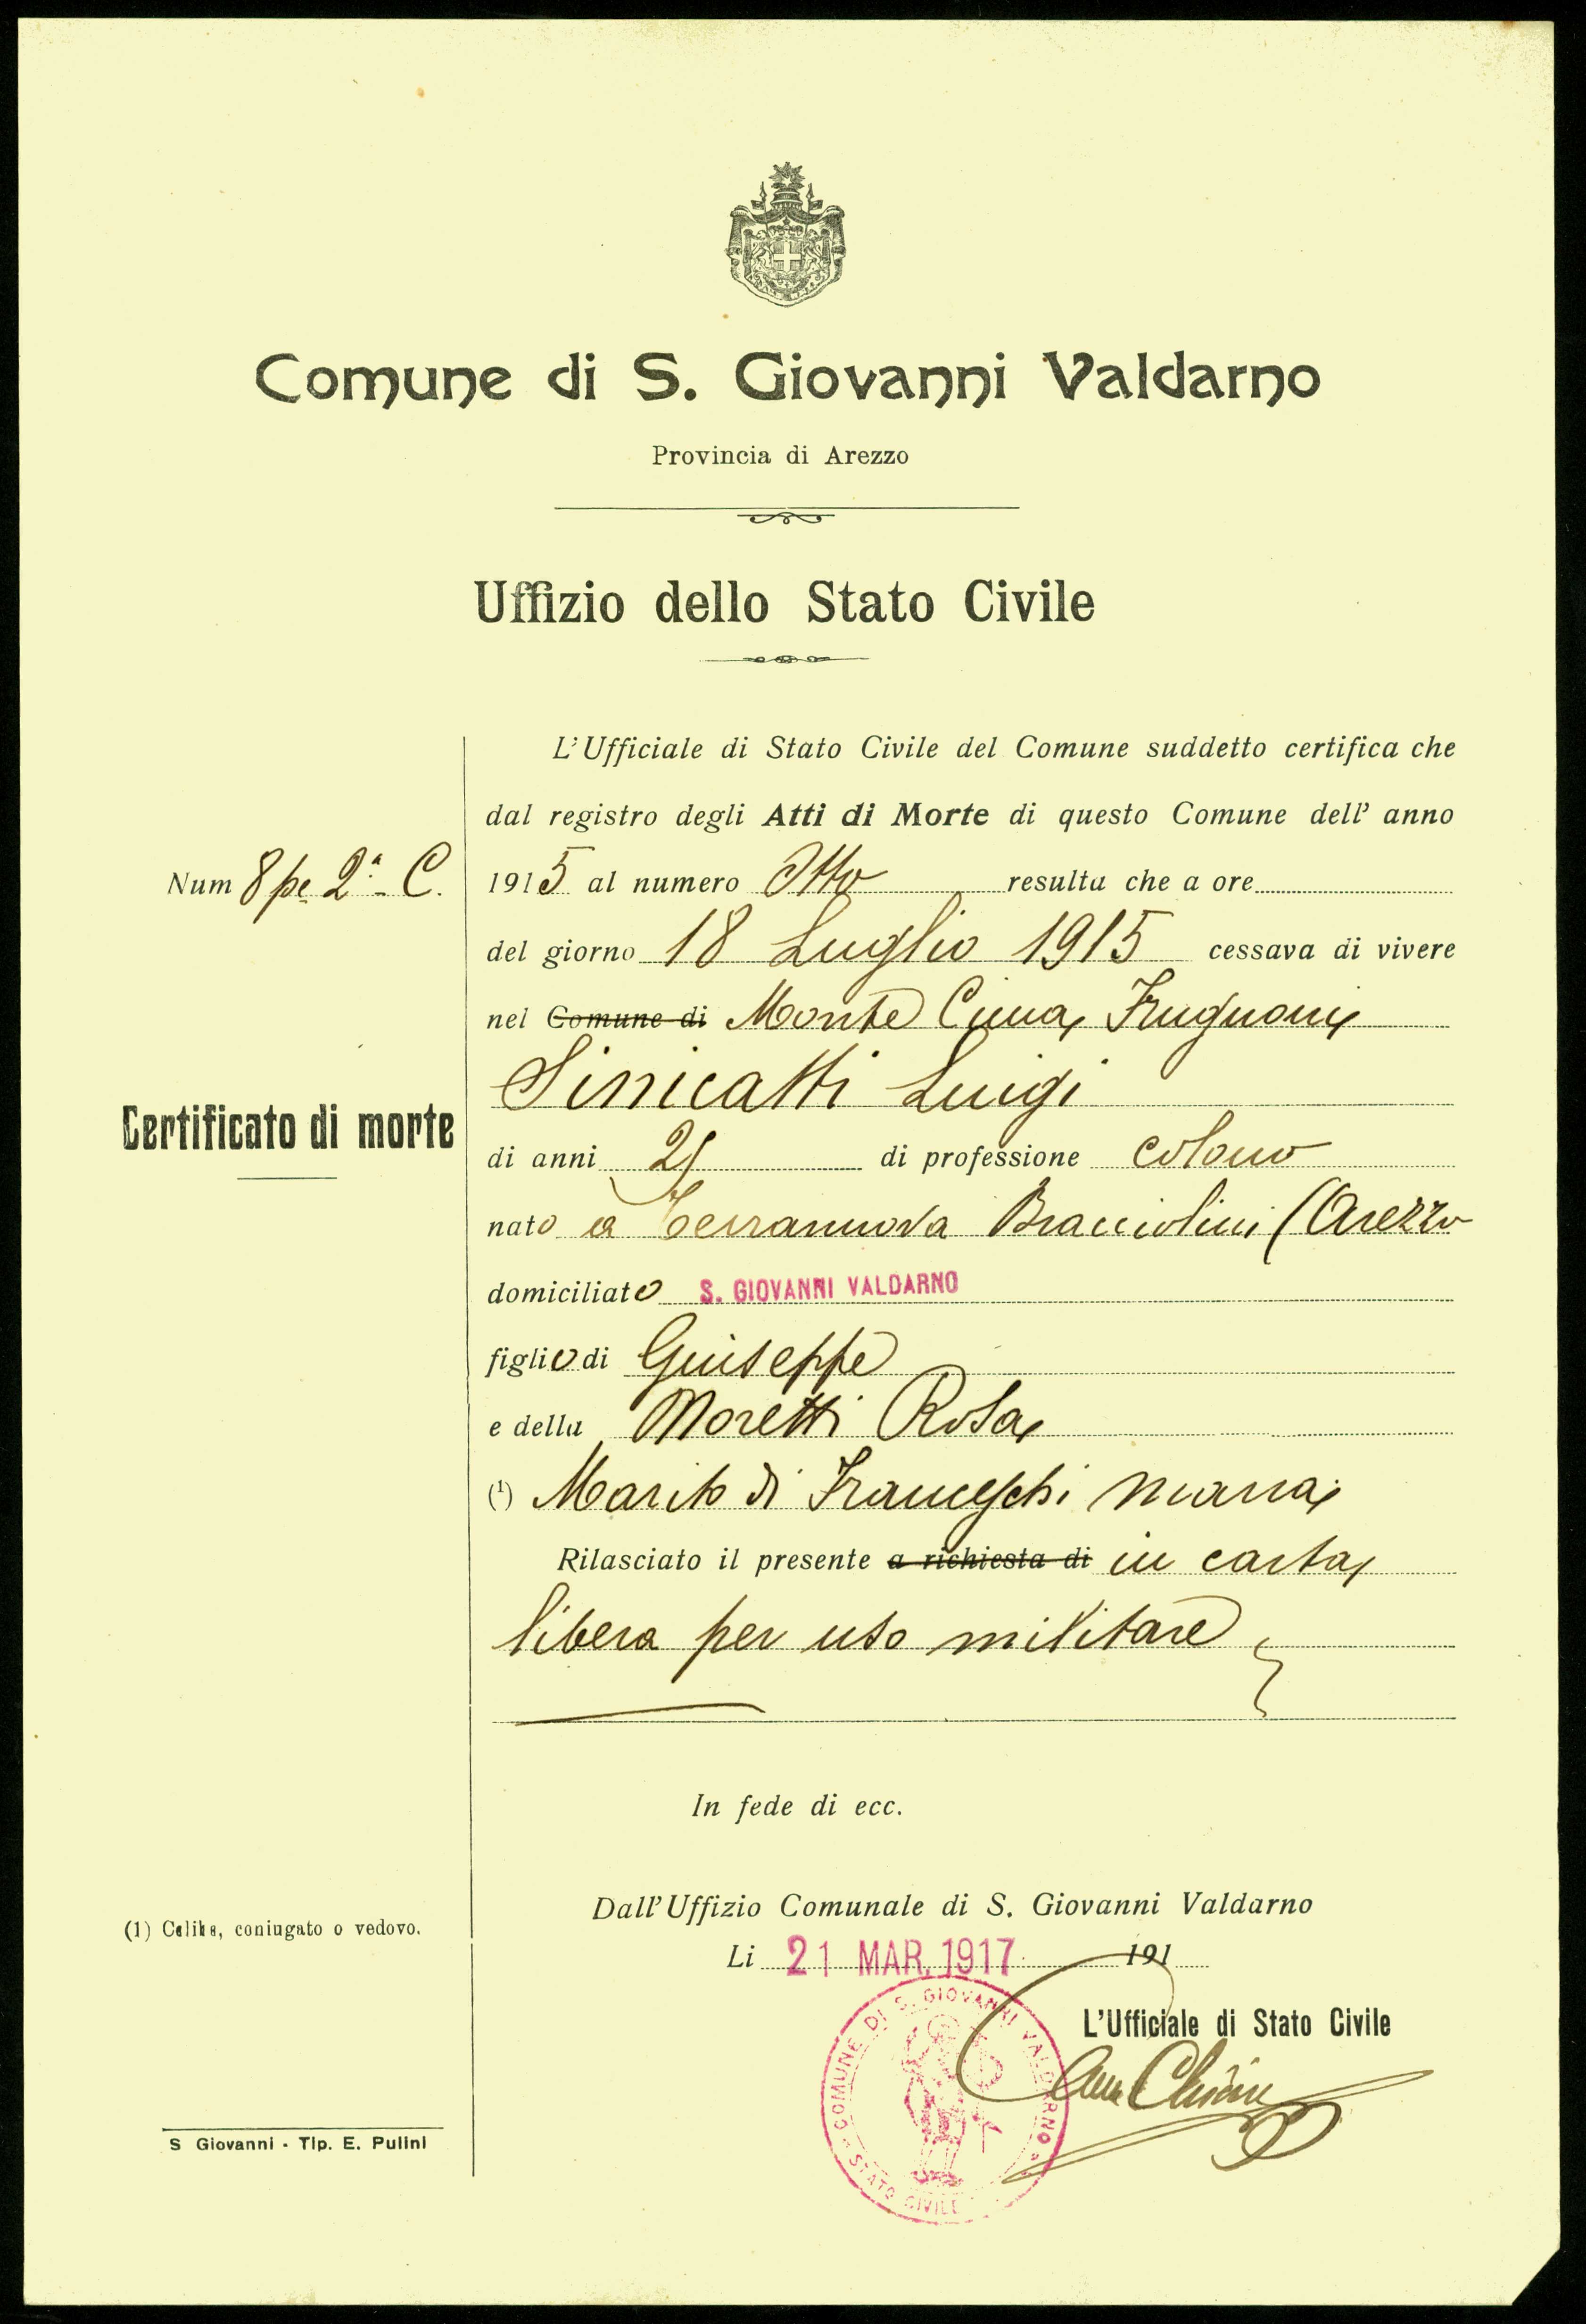 Comune di S. Giovanni Valdarno
Provincia di Arezzo
Uffizio dello Stato Civile
L'Ufficiale di Stato Civile del Comune suddetto certifica che
dal registro degli Atti di Morte di questo Comune dell' anno
Num 8 pe 2ª - C.
1915 al numero Otto resulta che a ore
del giorno 18 Luglio 1915 cessava di vivere
nel Comune di Monte Cima Frugnoni
Sinicatti Luigi
Certificato di morte
di anni 21 di professione colono
nato a Terranuova Bracciolini (Arezzo
domiciliato S. GIOVANNI VALDARNO
figlio di Giuseppe
e della Moretti Rosa
(1) Marito di Franceschi Maria
Rilasciato il presente a richiesta di in carta
libera per uso militare
In fede di ecc.
Dall'Uffizio Comunale di S. Giovanni Valdarno
(1) Celibe, coniugato o vedovo.
Li 21 MAR. 1917 191
L'Ufficiale di Stato Civile
COMUNE DI S. GIOVANNI VALDARNO
STATO CIVILE
S Giovanni - Tip. E. Pulini